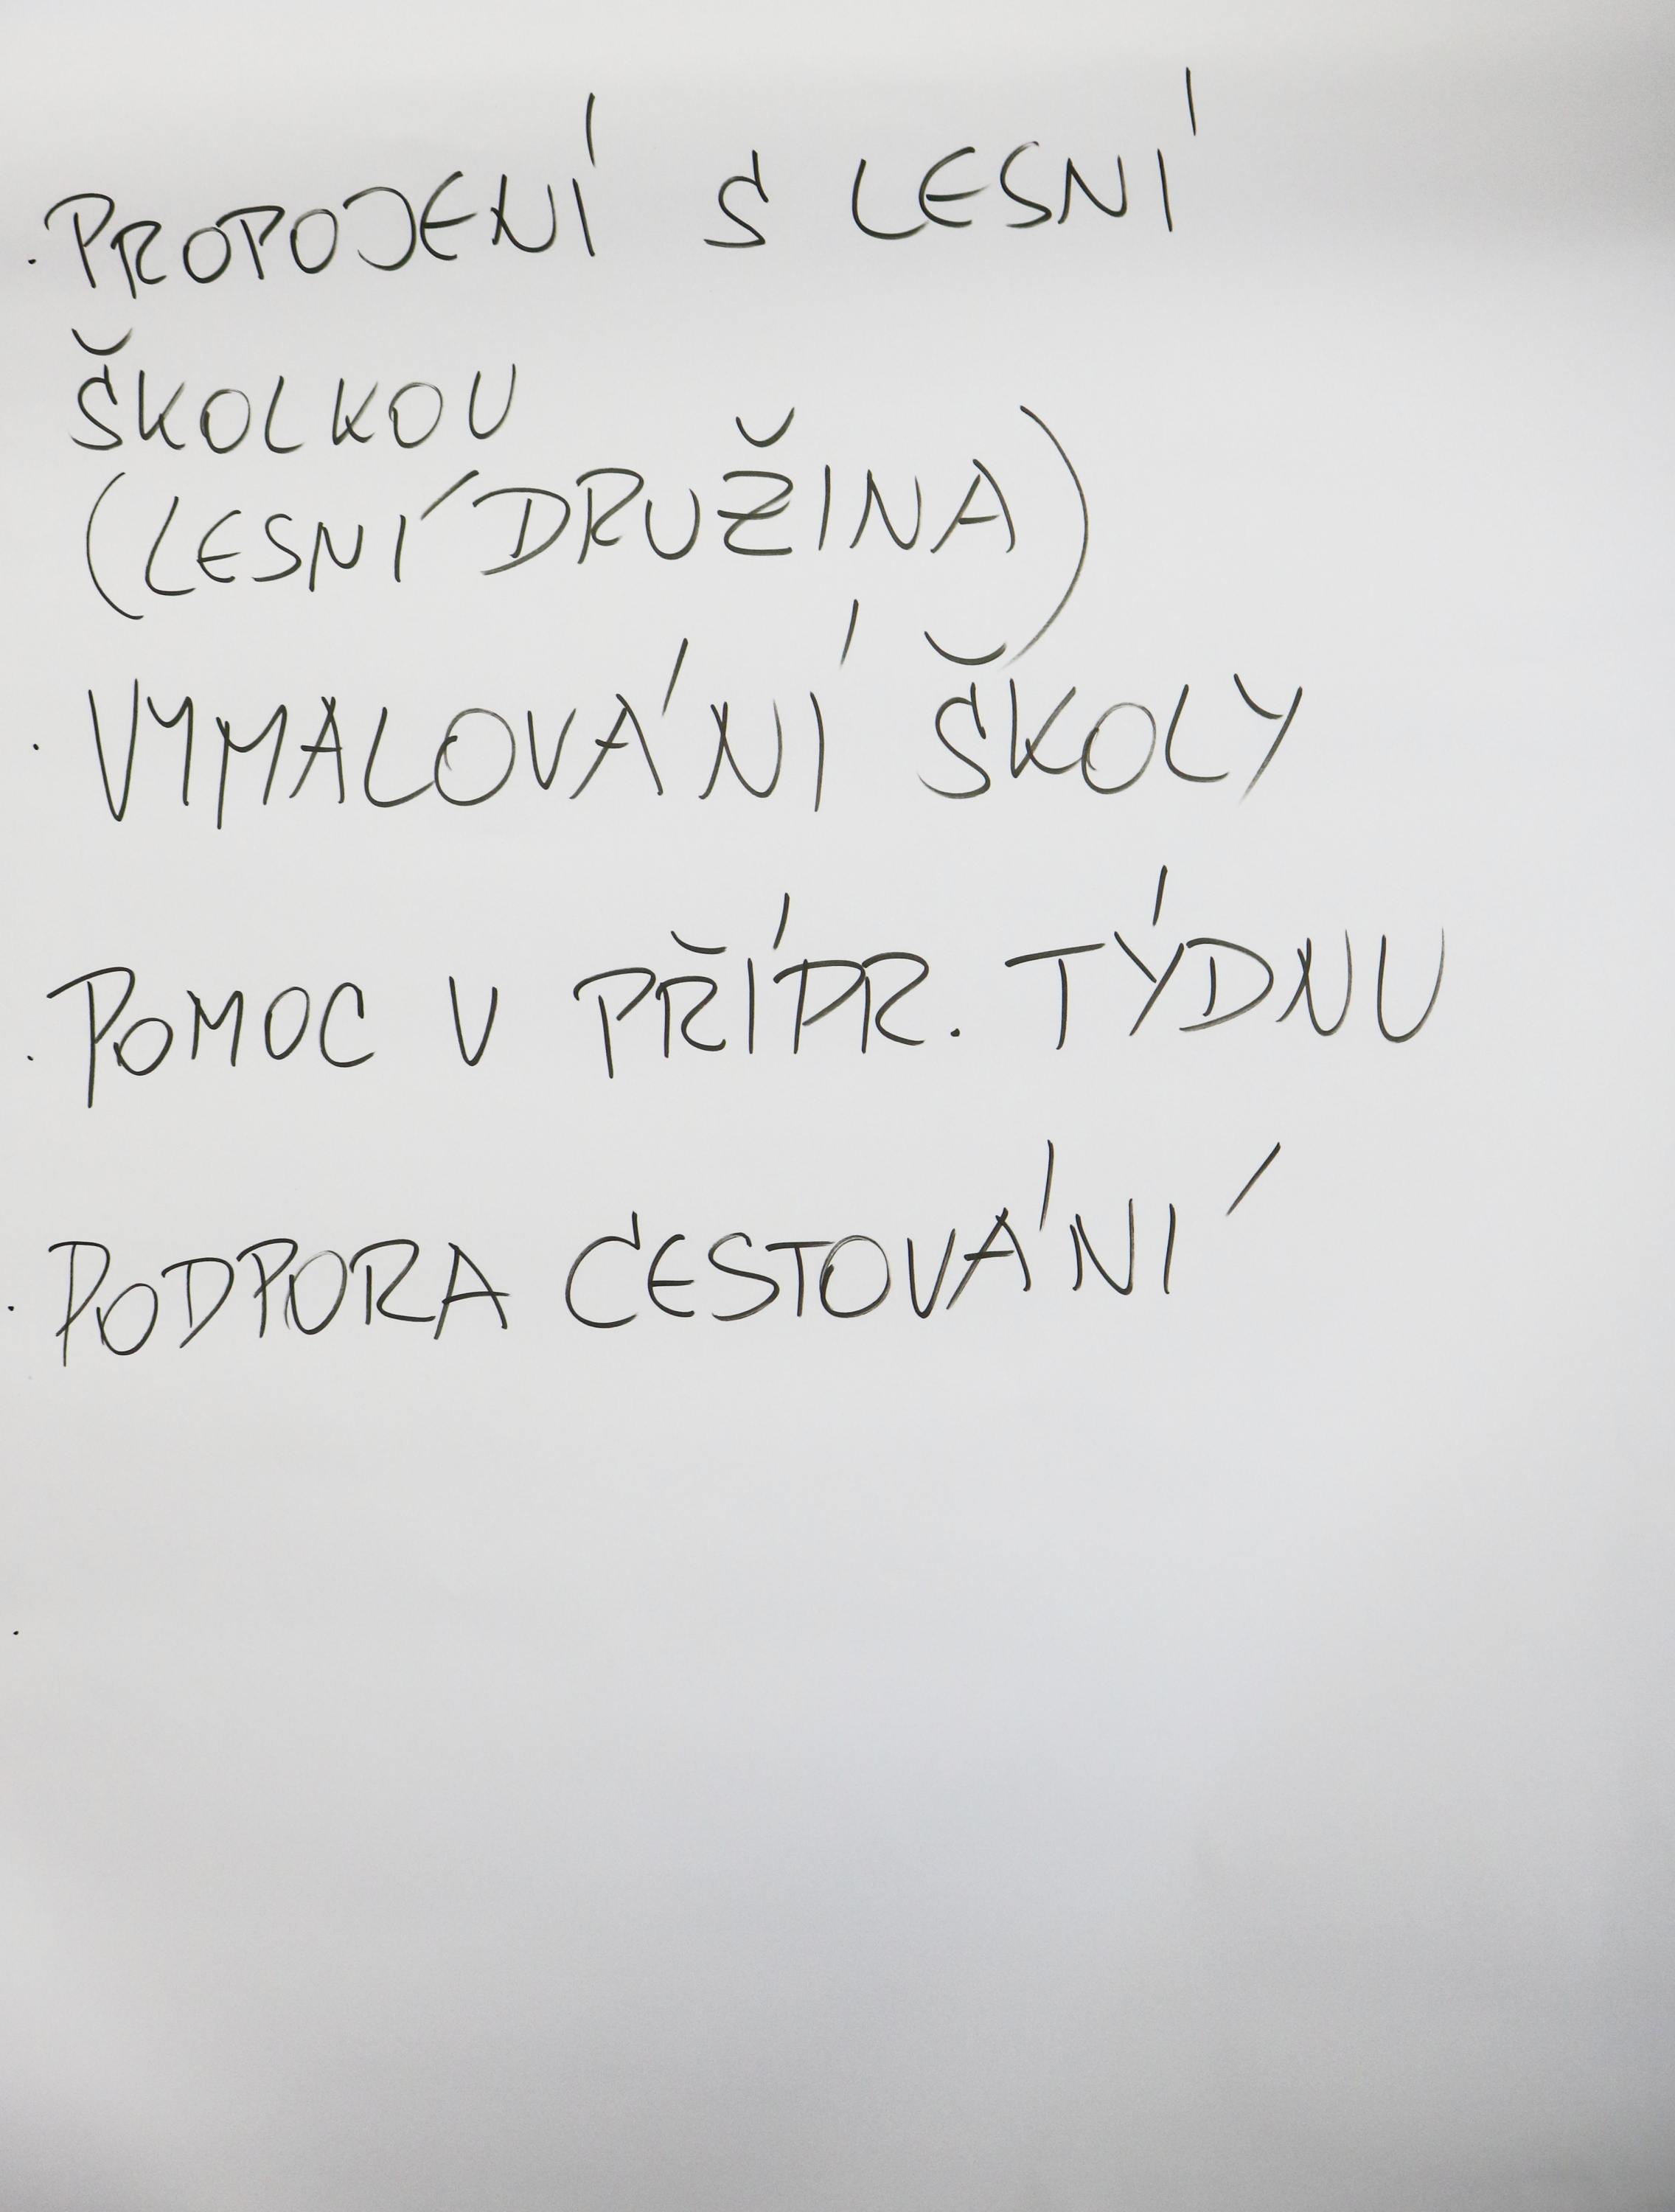 · PROPOJENÍ S LESNÍ
ŠKOLKOU
(LESNÍ DRUŽINA)
· VYMALOVÁNÍ ŠKOLY
· POMOC V PŘÍPR. TÝDNU
· PODPORA CESTOVÁNÍ
·